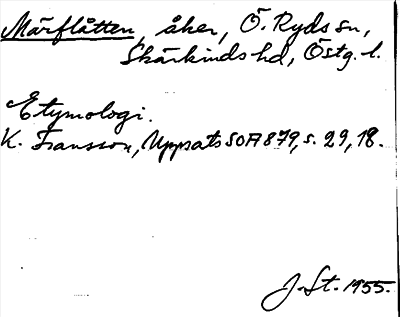 Märflåtten, åker, Ö. Ryds sn,
Skärkinds hd, Östg. l.
Etymologi.
K. Fransson, Uppsats SOA 879, s. 29, 18.
J. St. 1955.